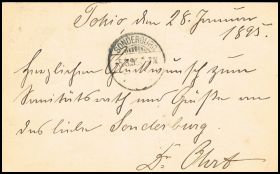 Tokio den 28. Januar
1895.
SONDERBURG
Herzlichen Glückwunsch zum
Sanitätsrath und Grüße an
das liebe Sonderburg.
Dr.